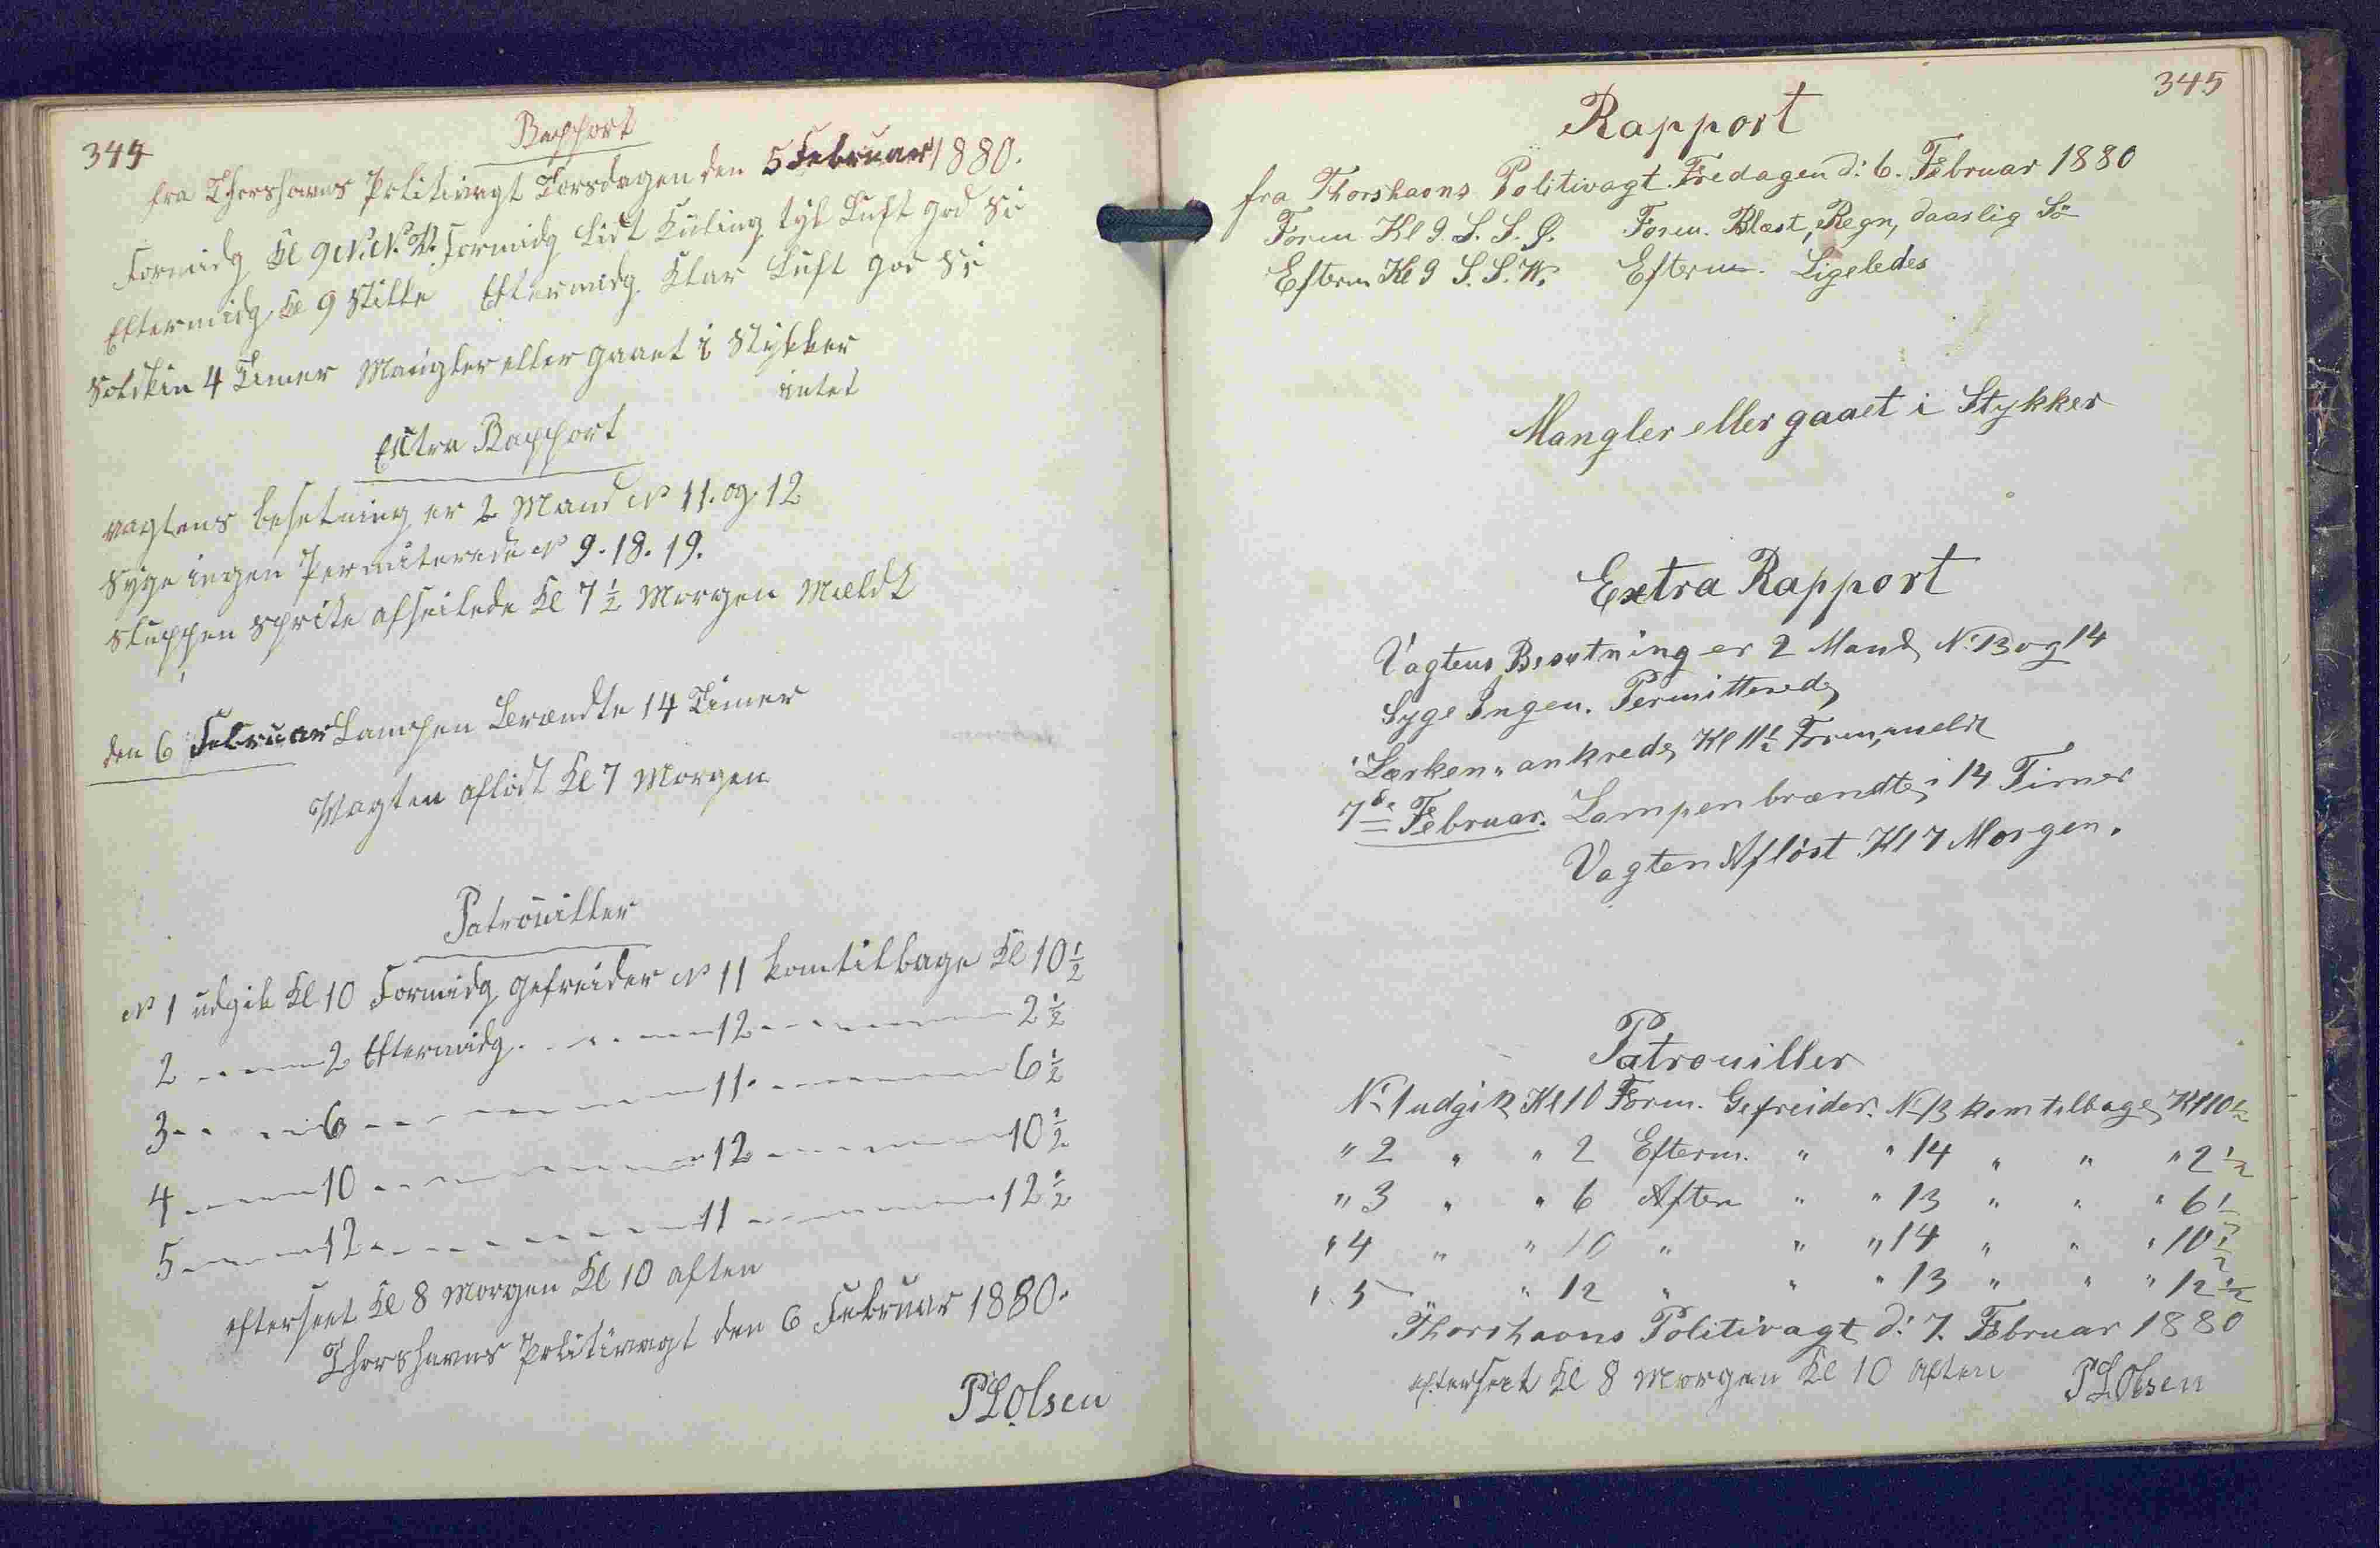 344
Rapport
fra Thorshavns Politivagt Torsdagen den 5 Februar 1880.
Formidg Kl 9 N.N.V. Formidg Lidt Kuling tyk Luft god Sö
Eftermidg Kl 9 Stille Eftermidg. Klar Luft god Sö
Solskin 4 Timer Mangler eller gaaet i Stykker
intet
Extra Rapport
vagtens besetning er 2 Mand No 11. og. 12
Syge ingen Permiterede No 9. 18. 19.
Sluppen afseilede Kl 7 1/2 Morgen Meldt
den 6 Februar Lampen Brændte 14 Timer
Vagten aflöst Kl 7 Morgen
Patrouiller
No 1 udgik Kl 10 Formidg Gefreider No 11 kom tilbage Kl 10 1/2
2 - - - - - 2 Eftermidg - - - - - 12 - - - - - 2 1/2
3 - - - - - 6 - - - - - 11 - - - - - 6 1/2
4 - - - - - 10 - - - - - 12 - - - - - 10 1/2
5 - - - - - 12 - - - - - 11 - - - - - 12 1/2
efterseet Kl 8 Morgen Kl 10 aften
Thorshavns Politivagt den 6 Februar 1880.
P L Olsen
345
Rapport
fra Thorshavns Politivagt. Fredagen d: 6. Februar 1880
Form Kl 9. S. S. Ø. Form. Blæst, Regn, daarlig Sö
Efterm Kl 9 S. S. W. Efterm. Ligeledes
Mangler eller gaaet i Stykker
Extra Rapport
Vagtens Besætning er 2 Mand, No 13 og 14
Syge Ingen. Permitterede
"Lærken" ankrede Kl 11 1/2 Form, meldt
7de Februar. Lampen brændte i 14 Timer
Vagten Aflöst Kl 7 Morgen.
Patrouiller
No 1 udgik Kl 10 Form. Gefreider. No 13 kom tilbage Kl 10 1/2
" 2 " " 2 Efterm. " " 14 " " " 2 1/2
" 3 " " 6 Aften " " 13 " " " 6 1/2
" 4 " " 10 " " " 14 " " " 10 1/2
" 5 " " 12 " " " 13 " " " 12 1/2
Thorshavns Politivagt d: 7. Februar 1880
efterseet Kl 8 Morgen Kl 10 Aften P L Olsen